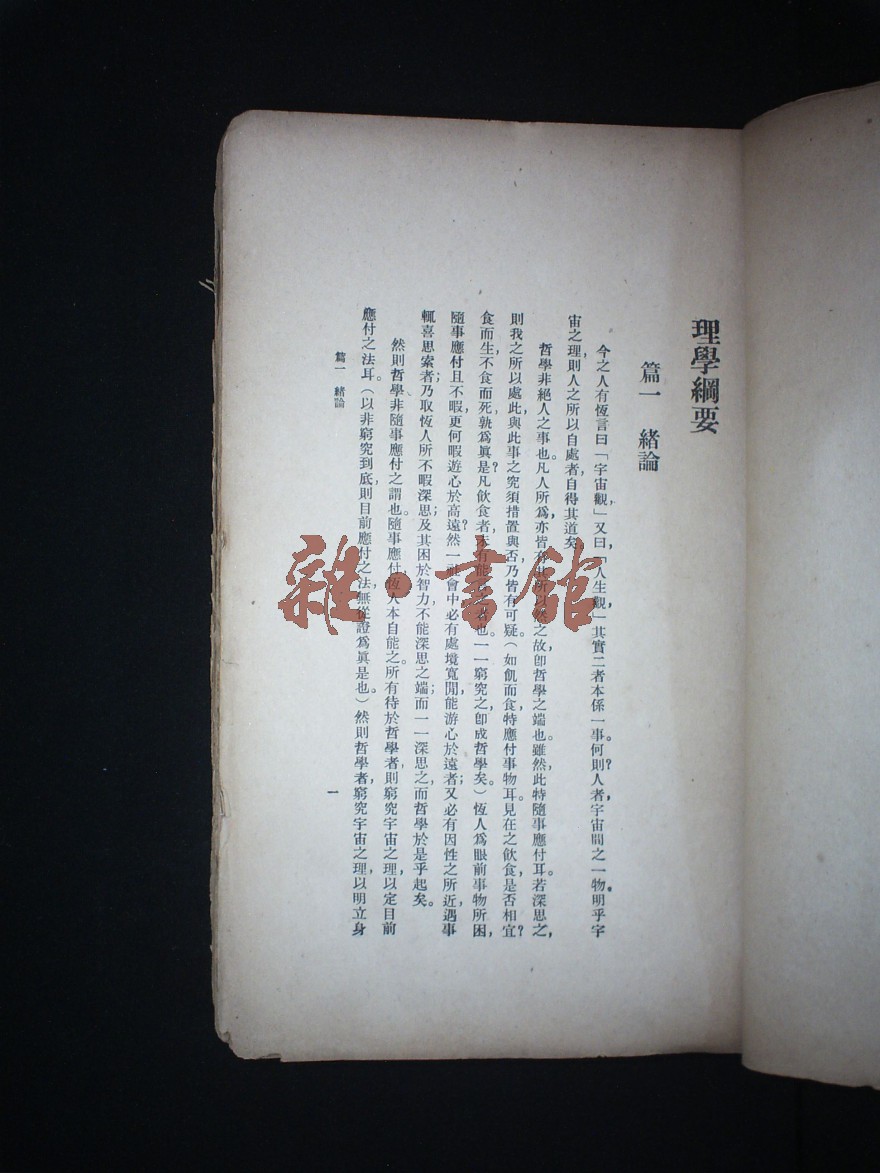 理學綱要
篇一　緒論
今之人有恆言曰「宇宙觀」又曰，「人生觀」其實二者本係一事。何則？人者，宇宙間之一物。明乎宇
宙之理，則人之所以自處者，自得其道矣。
哲學非絕人之事也。凡人所爲，亦皆有其所以然之故，卽哲學之端也。雖然，此特隨事應付耳。若深思之，
則我之所以處此，與此事之究須措置與否，乃皆有可疑（如飢而食，特應付事物耳。見在之飲食，是否相宜？
食而生，不食而死，孰爲眞是？凡飲食者，未有能言之者也。一一窮究之，卽成哲學矣。）恆人爲眼前事物所困，
隨事應付且不暇，更何暇遊心於高遠？然一社會中，必有處境寬閒，能游心於遠者；又必有因性之所近，遇事
輒喜思索者；乃取恆人所不暇深思，及其困於智力，不能深思之端，而一一深思之，而哲學於是乎起矣。
然則哲學非隨事應付之謂也。隨事應付，恆人本自能之。所有待於哲學者，則窮究宇宙之理，以定目前
應付之法耳（以非窮究到底，則目前應付之法，無從證爲眞是也。）然則哲學者，窮究宇宙之理，以明立身
篇一　緒論
一
雜·書館